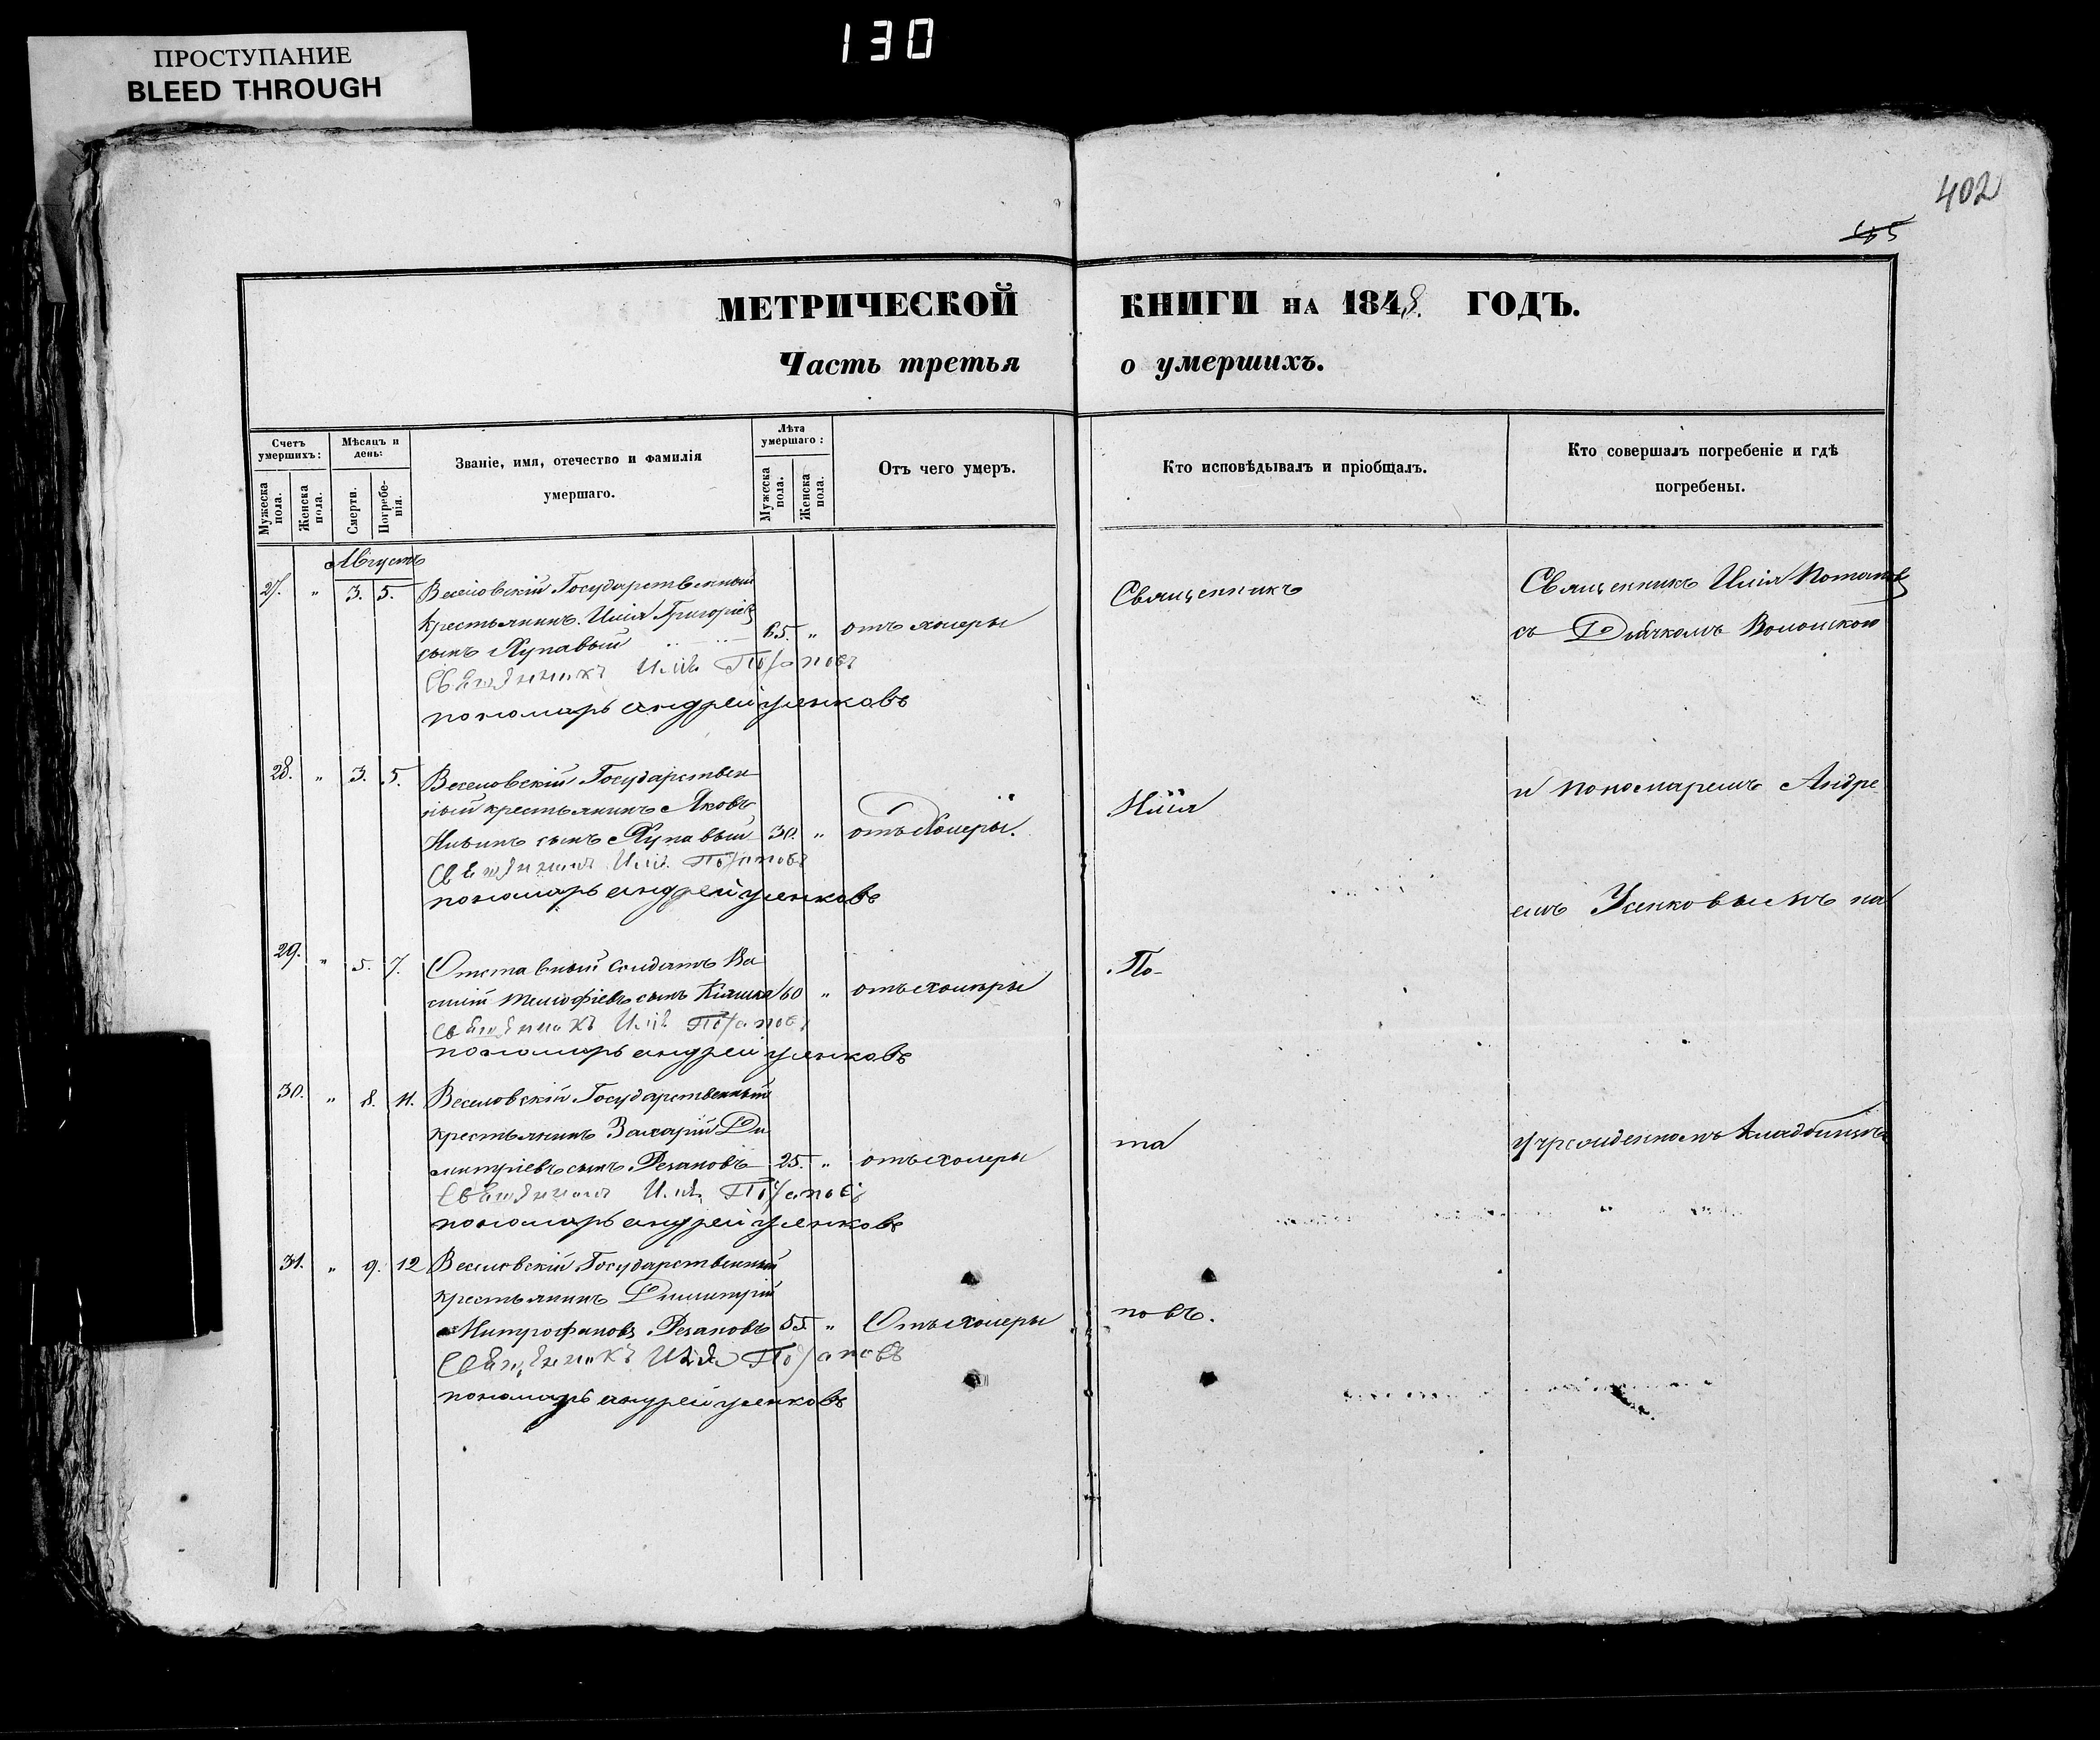 130
ПРОСТУПАНИЕ
BLEED THROUGH
402
МЕТРИЧЕСКОЙ КНИГИ НА 1848. ГОДЪ.
Часть третья о умершихъ.
Счетъ умершихъ:
Мужеска пола.
Женска пола.
Мѣсяцъ и день:
Смерти.
Погребенія.
Званіе, имя, отечество и фамилія
умершаго.
Лѣта умершаго:
Мужеска пола.
Женска пола.
Отъ чего умеръ.
Кто исповѣдывалъ и пріобщалъ.
Кто совершалъ погребеніе и гдѣ
погребены.
Августъ
27. " 3. 5. Веселовскій Государственный
крестьянинъ Илія Григоріевъ
сынъ Хупавый 65. " отъ холеры
Священникъ Илія Потаповъ
пономарь андрей усенковъ
28. " 3. 5. Веселовскій Государствен
ный крестьянинъ Яковъ
сынъ Хупавый 30. " отъ холеры.
Священникъ Илія Потаповъ
пономарь андрей усенковъ
29. " 5. 7. Отставный солдатъ Ва
силій сынъ 60 " отъ холеры
Священникъ Илія Потаповъ
пономарь андрей усенковъ
30. " 8. 11. Веселовскій Государственный
крестьянинъ Захарій Ди
митріевъ сынъ Резановъ 25. " отъ холеры
Священникъ Илія Потаповъ
пономарь андрей усенковъ
31. " 9. 12 Веселовскій Государственный
крестьянинъ Димитрій
Митрофановъ Резановъ 55. " Отъ холеры
Священникъ Илія Потаповъ
пономарь андрей усенковъ
Священникъ
Илія
По-
та
повъ.
Священникъ Илія Потаповъ
съ Дьячкомъ
и пономаремъ Андре
емъ Усенковымъ на
учрежденномъ кладбищѣ